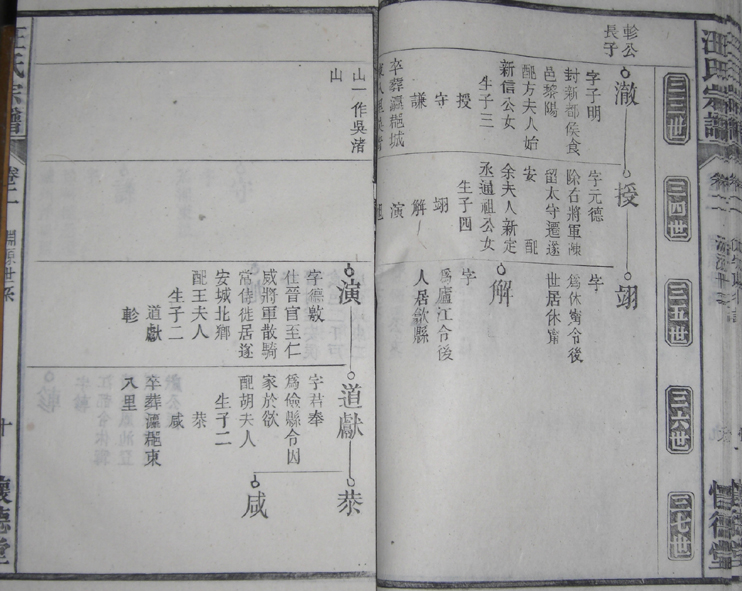 汪氏宗譜
三三世
三四世
三五世
三六世
三七世
軫公
長子
澈
字子明
封新都侯食
邑黎陽
配方夫人始
新信公女
生子三
授
守
謙
卒葬瀛㲠城
授
字元德
除右將軍陳
留太守遷遂
安 配
余夫人新定
丞通祖公女
生子四
翊
解
演
翊
字
為休甯令後
世居休甯
解
字
為廬江令後
人居歙縣
山一作吳渚
山
演
字德敷
仕晉官至仁
威將軍散騎
常侍徙居遂
安城北鄉
配王夫人
生子二
道獻
軫
道獻
字君奉
為儉縣令因
家於歙
配胡夫人
生子二
恭
咸
卒葬瀛㲠東
八里
恭
咸
汪氏宗譜
卷二
淵源世系
十
懷德堂